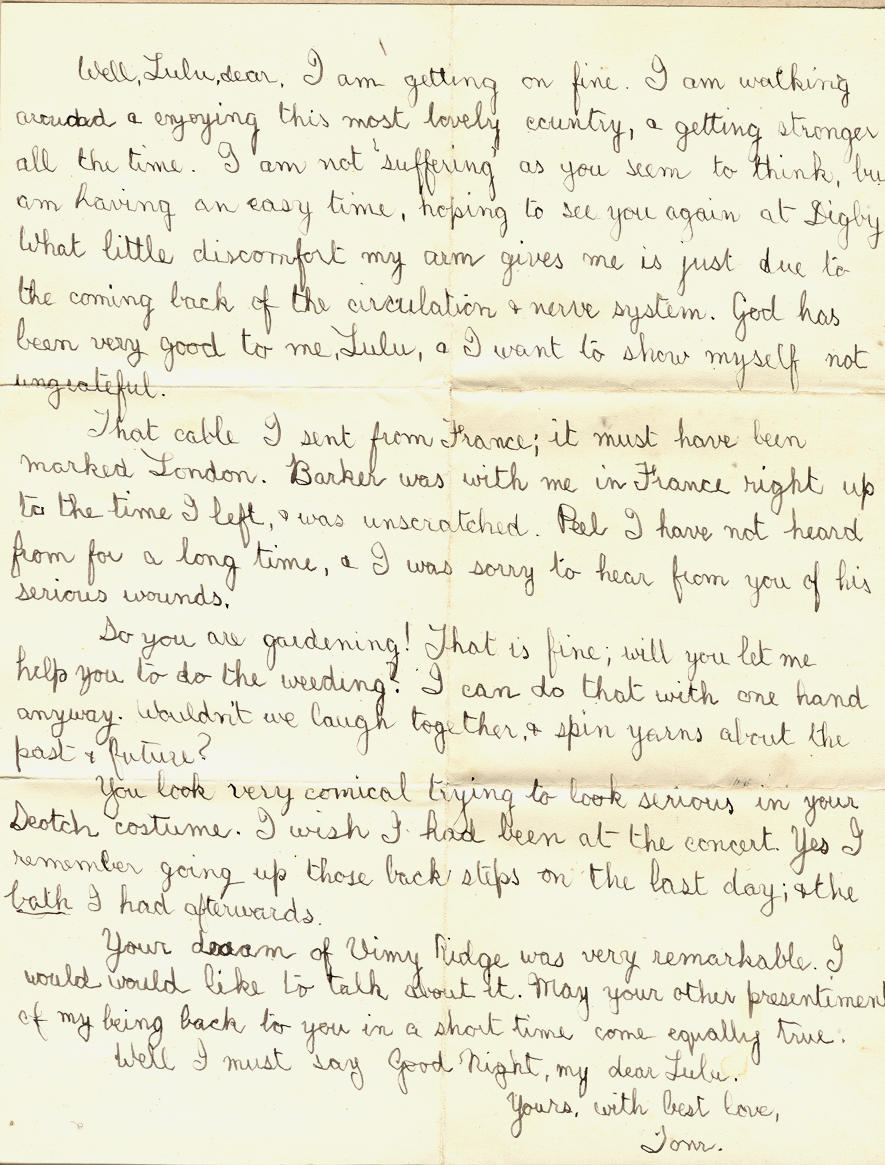 Well, Lulu, dear, I am getting on fine. I am walking
around & enjoying this most lovely country, & getting stronger
all the time. I am not 'suffering' as you seem to think, bu
am having an easy time, hoping to see you again at Digby
What little discomfort my arm gives me is just due to
the coming back of the circulation & nerve system. God has
been very good to me, Lulu, & I want to show myself not
ungrateful.
That cable I sent from France; it must have been
marked London. Barker was with me in France right up
to the time I left, & was unscratched. Peel I have not heard
from for a long time, & I was sorry to hear from you of his
serious wounds.
So you are gardening! That is fine; will you let me
help you to do the weeding? I can do that with one hand
anyway. Wouldn't we laugh together, & spin yarns about the
past & future?
You look very comical trying to look serious in your
Scotch costume. I wish I had been at the concert. Yes I
remember going up those back steps on the last day; & the
bath I had afterwards.
Your dream of Vimy Ridge was very remarkable. I
would would like to talk about it. May your other presentiment
of my being back to you in a short time come equally true.
Well I must say Good Night, my dear Lulu.
Yours, with best love,